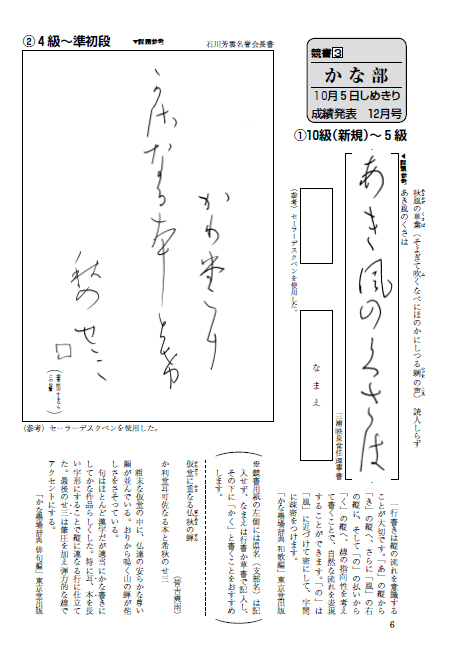 競書③
かな部
10月5日しめきり
成績発表　12月号
①10級(新規)〜5級
◀課題参考
秋風の草葉（そよぎて吹くなべにほのかにしつる蜩の声）　読人しらず
あき風のくさは
あき風のくさは
三浦映泉堂任理事書
なまえ
（参考）セーラーデスクペンを使用した。
②4級〜準初段
▼課題参考
石川芳雲名誉会長書
（参考）セーラーデスクペンを使用した。
一行書きは縦の流れを意識する
ことが大切です。「あ」の縦から
「き」の縦へ、さらに「風」の右
の縦に、そして「の」の払いから
「く」の縦へ、線の指向性を考え
て書くことで、自然な流れを表現
することができます。「の」は
「風」に近づけて密にして、字間
に疎密をつけます。
「かな墨場辞典 和歌編」東京堂出版
※競書用紙の左側には県名（支部名）は記
入せず、なまえは行書か草書で記入し、
その下に「かく」と書くことをおすすめ
します。
仮堂に重なる仏秋の蝉
か利堂耳可佐なる本と希秋のせ三
粗末な仮堂の中に、仏達の安らかな尊い
顔が並んでいる。おりから鳴く山の蝉が侘
しさをさそっている。
句はほとんど漢字だが適当にかな書きに
してかな作品らしくした。特に耳、本を長
い字形にすることで縦に連なる行に仕立て
た。最後のせ三は筆圧を加え弾力的な線で
アクセントにする。
「かな墨場辞典 俳句編」東京堂出版
6